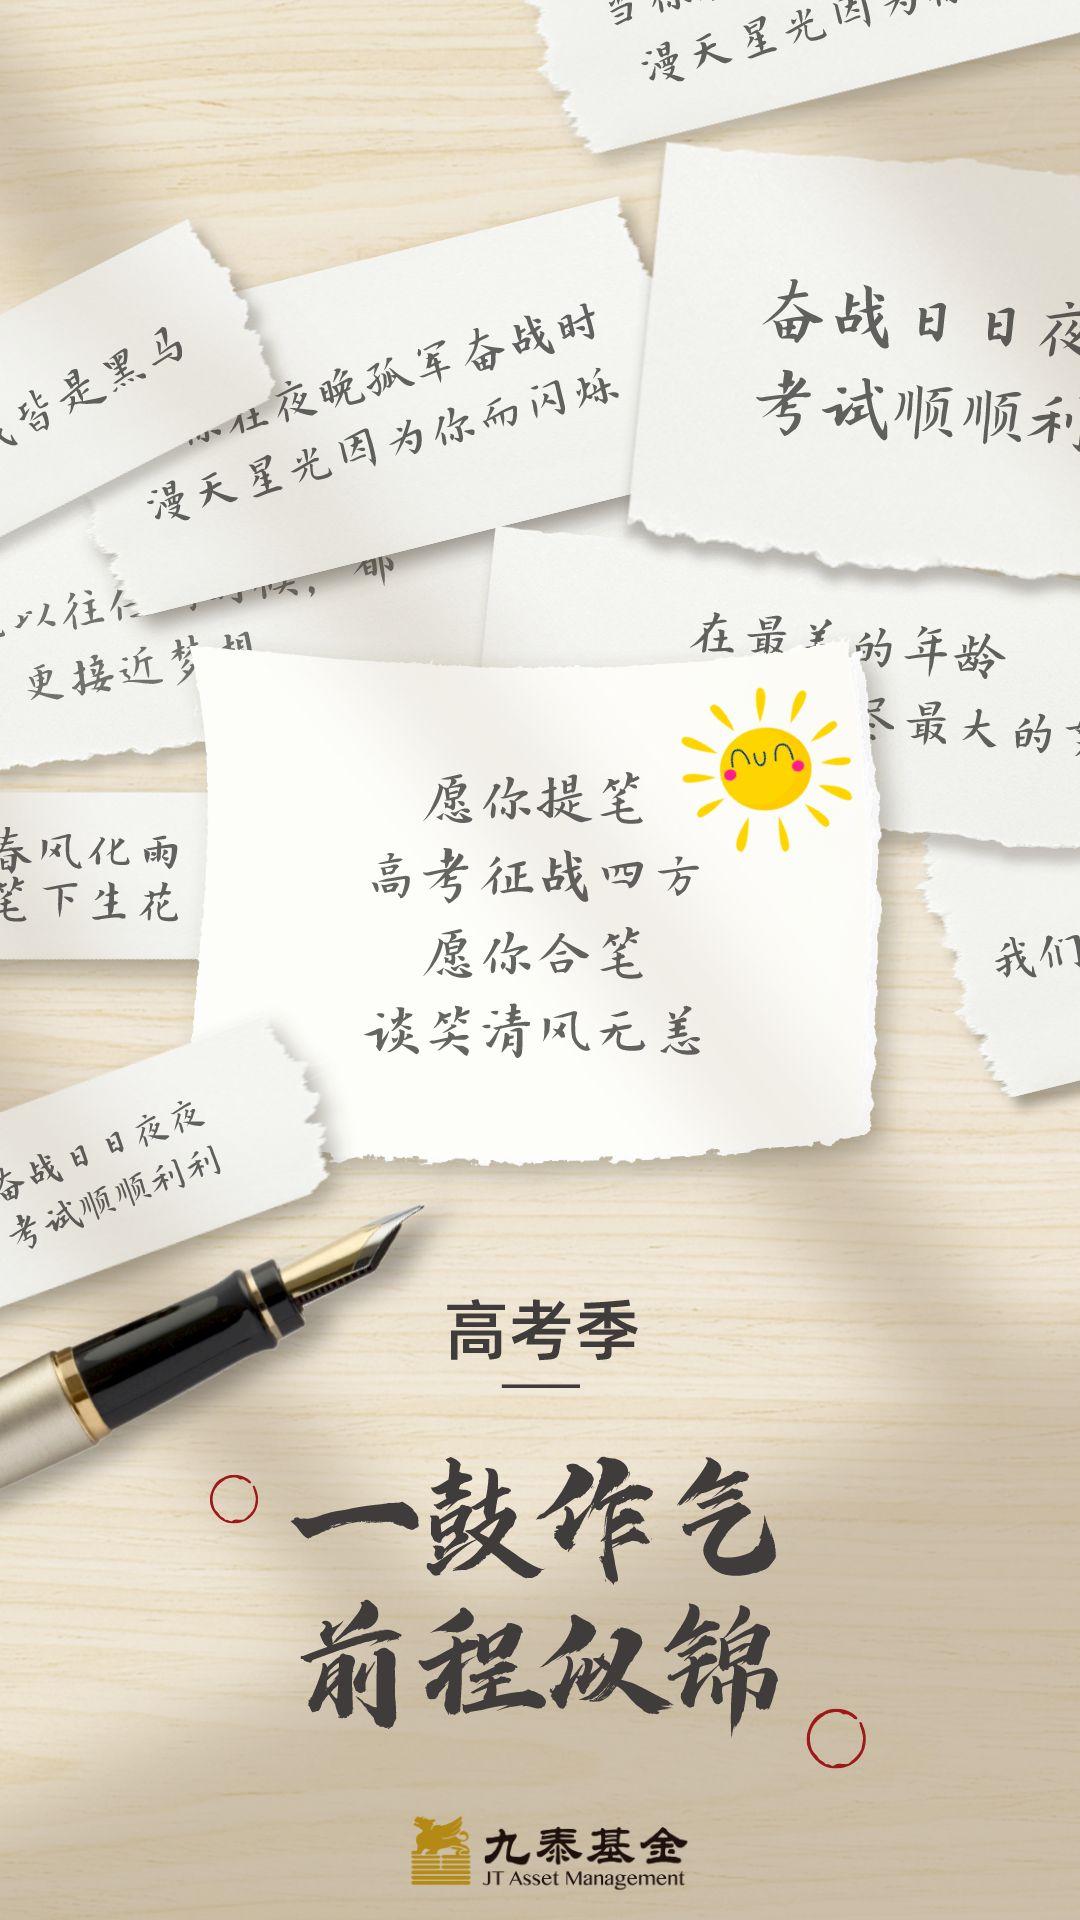 漫天星光因为你
奋战日日夜
考试顺顺利
皆是黑马
你在夜晚孤军奋战时
漫天星光因为你而闪烁
以往任何时候，都
更接近梦想
在最美的年龄
尽最大的
春风化雨
笔下生花
愿你提笔
高考征战四方
愿你合笔
谈笑清风无恙
我们
奋战日日夜夜
考试顺顺利利
高考季
一鼓作气
前程似锦
九泰基金
JT Asset Management